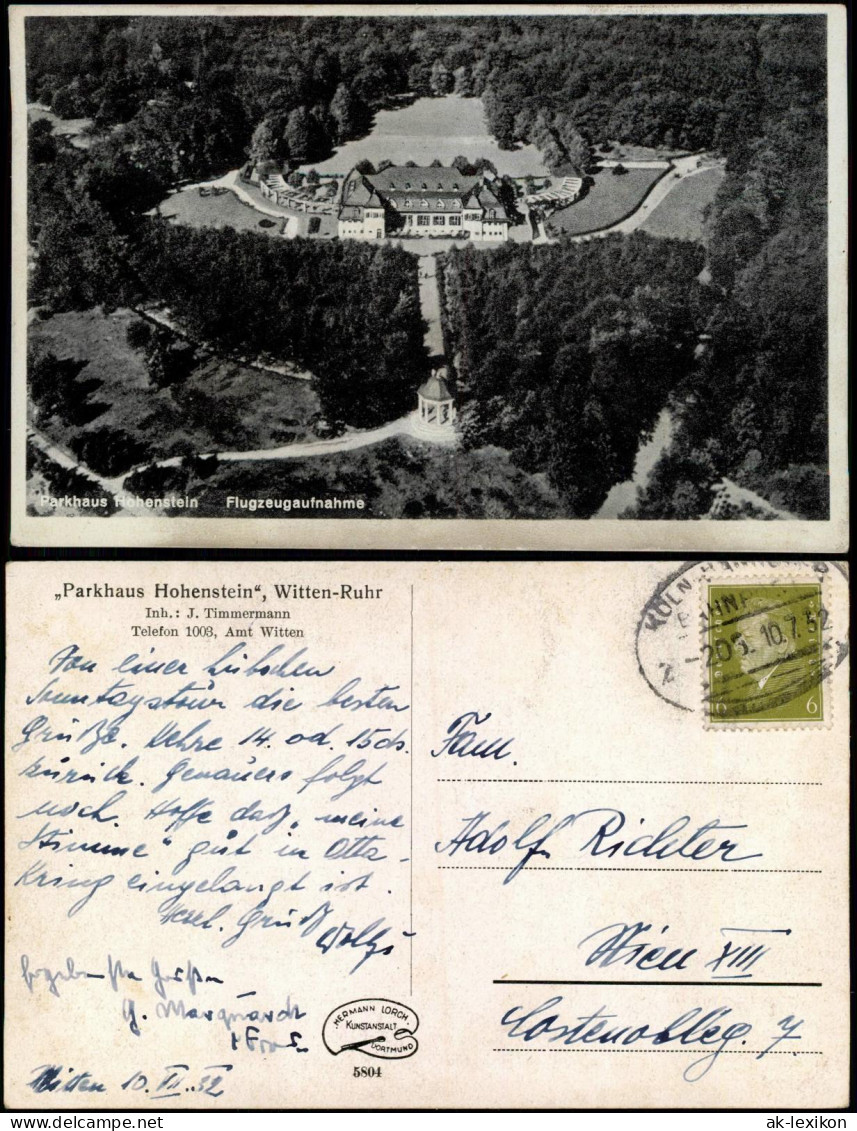 Parkhaus Hohenstein Flugzeugaufnahme
„Parkhaus Hohenstein“, Witten-Ruhr
Inh.: J. Timmermann
Telefon 1003, Amt Witten
Von einer hübschen
Sonntagstour die besten
Grüße. Kehre 14. od. 15 ds.
zurück. Genaueres folgt
noch. Hoffe daß „meine
Stimme“ gut in Otta-
Kring eingelangt ist.
Herzl. Gruß
Ergebenste Grüße
G. Marquardt
Witten 10.VII.32
HERMANN LORCH
KUNSTANSTALT
DORTMUND
5804
KÖLN-HANNOVER
BAHNPOST
Z 10.7.32
6 6
Fam.
Adolf Richter
Wien XIII
7.
ak-lexikon ak-lexikon.com